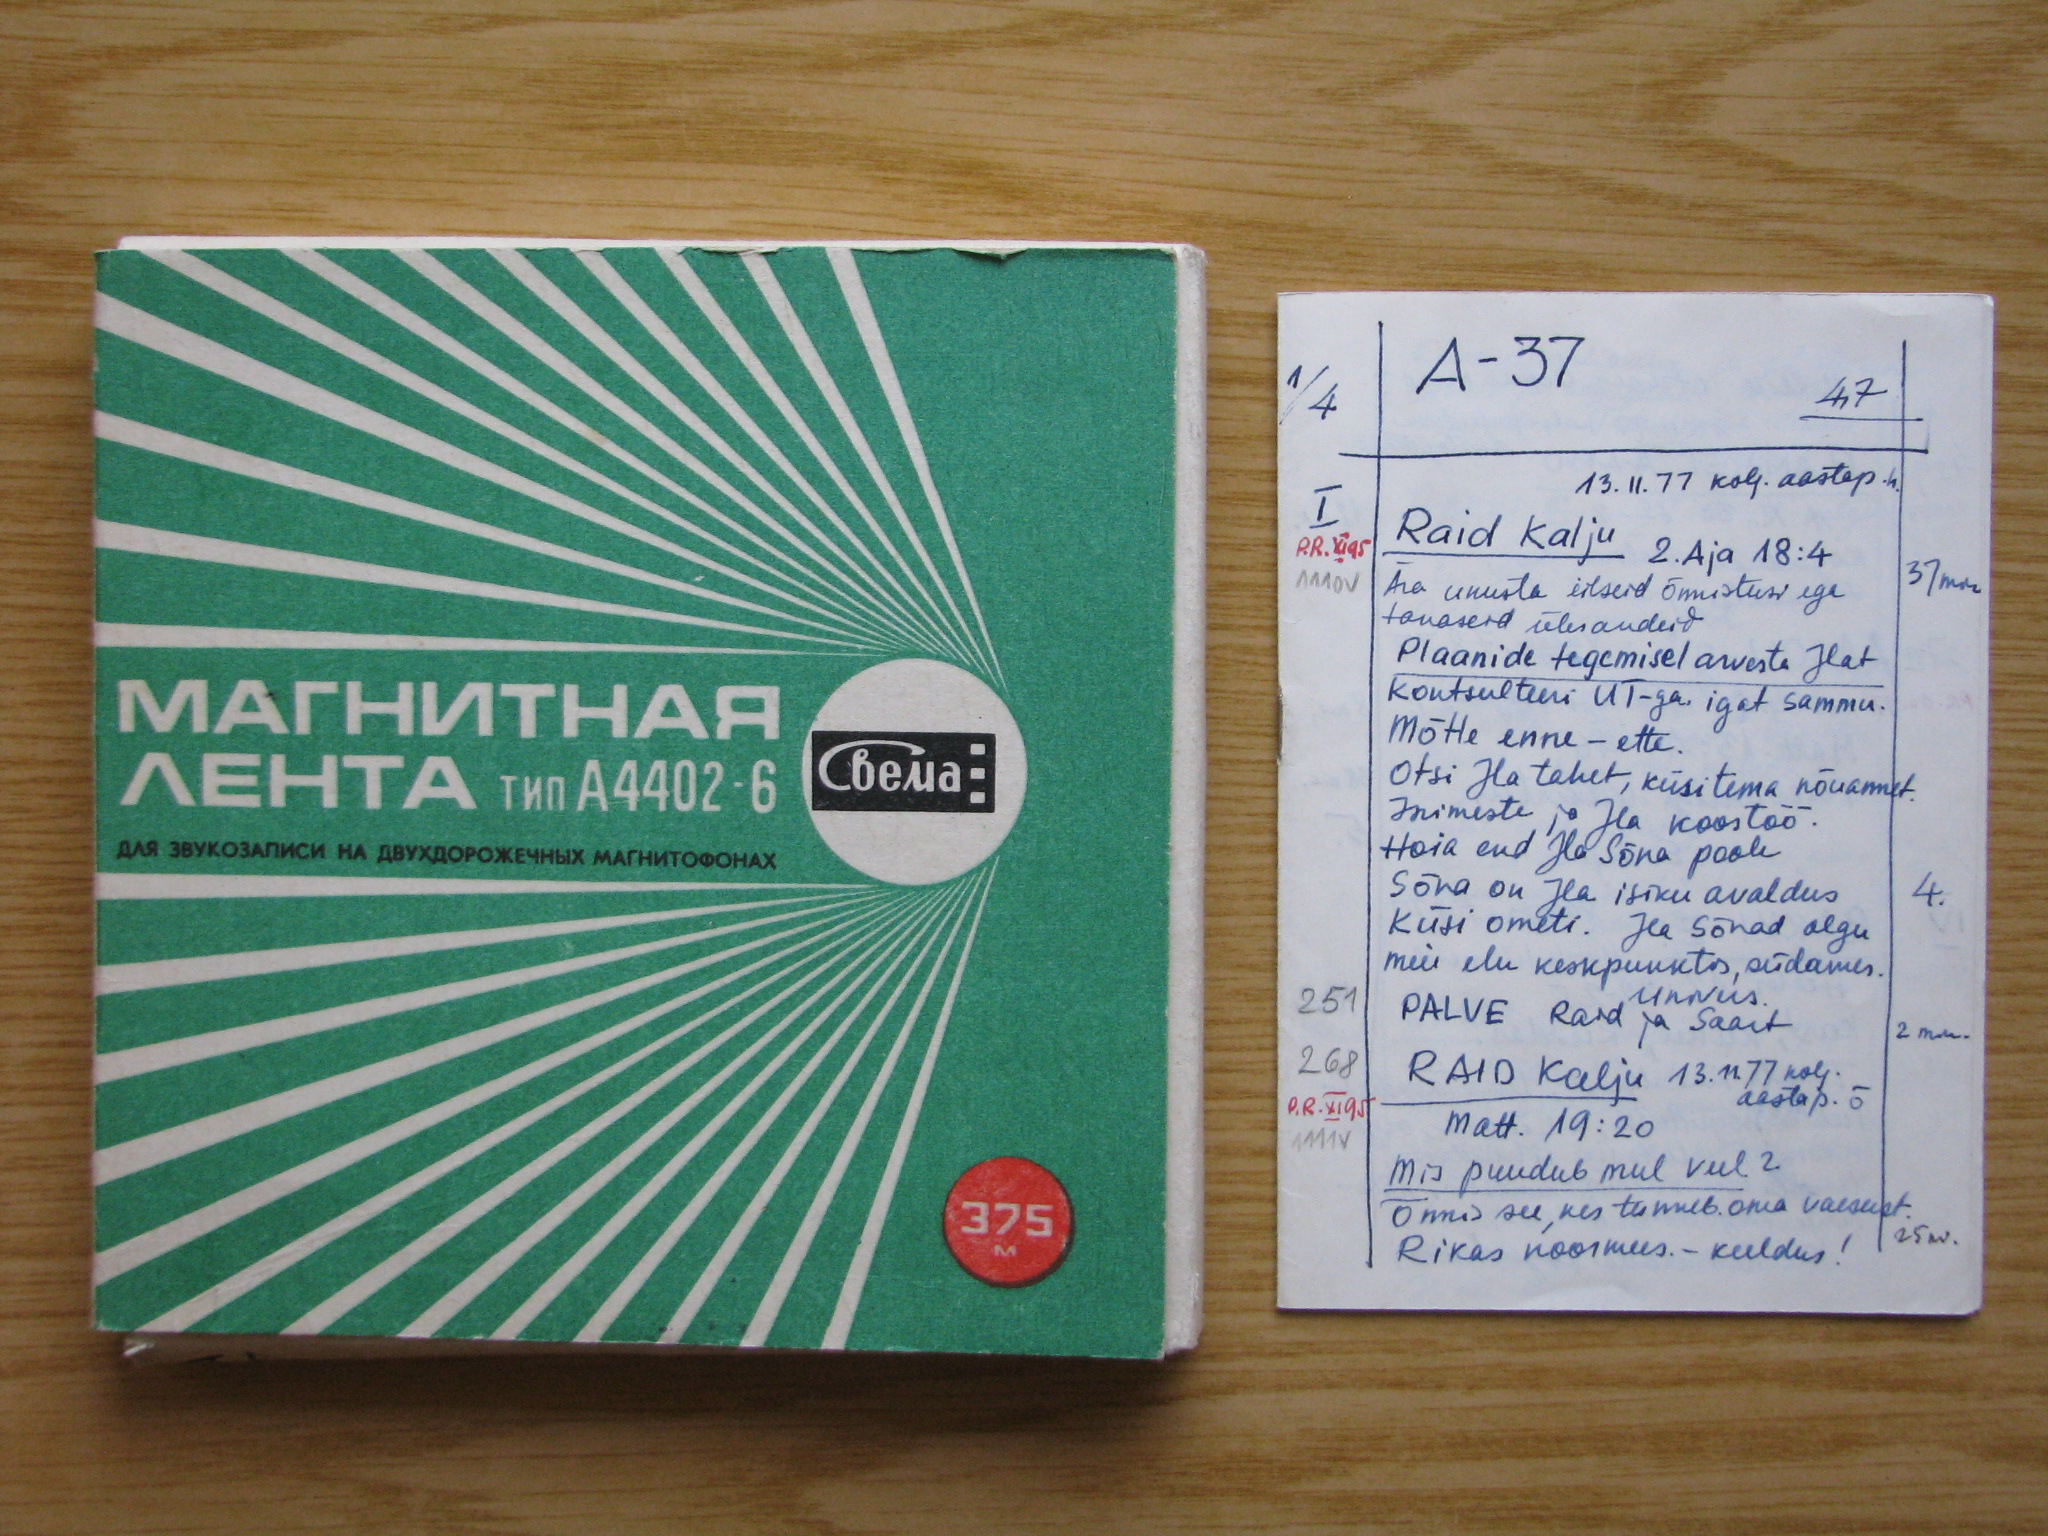 МАГНИТНАЯ
ЛЕНТА тип А4402-6
Свема
ДЛЯ ЗВУКОЗАПИСИ НА ДВУХДОРОЖЕЧНЫХ МАГНИТОФОНАХ
375
м
1/4
A-37
4,7
13.11.77 kolj. aastap. h.
I
P.R. XI 95
1110V
Raid Kalju 2. Aja 18:4
37 min
Ära unusta eilseid õnnistusi ega
tänaseid ülesandeid
Plaanide tegemisel arvesta Jlat
Konsulteeri UT-ga. igat sammu.
Mõtle enne-ette.
Otsi Jla tahet, küsi tema nõuannet.
Inimeste ja Jla koostöö.
Hoia end Jla Sõna poole
Sõna on Jla isiku avaldus
4.
Küsi ometi. Jla Sõnad olgu
meie elu keskpunktis, südames.
251
PALVE Raid ja Saart
2 min.
268
RAID Kalju 13.11.77 kolj.
aastap. õ
P.R. XI 95
1111V
Matt. 19:20
Mis puudub mul veel?
Õnnis see, kes tunneb oma vaesust.
25 m.
Rikas noormees. - keeldus!